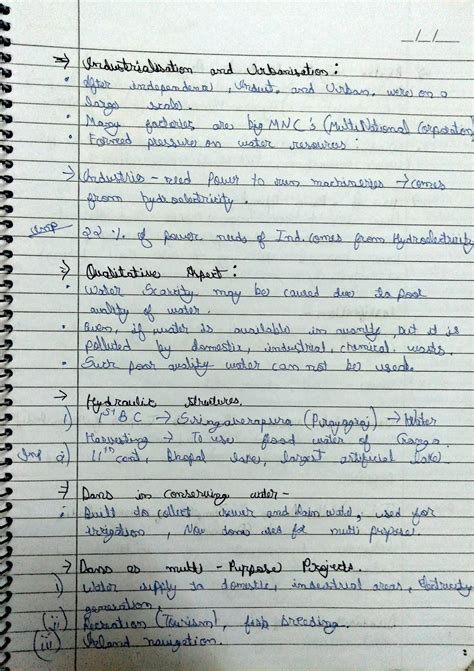 _/_/_
→ Industrialisation and Urbanisation :
• After independence, Indust. and Urban. were on a
large scale.
• Many factories are big MNC's (Multi National Corporation)
• Formed pressure on water resources.
→ Industries - need Power to run machineries → comes
from hydroelectricity.
Imp 22% of power needs of Ind. comes from Hydroelectricity
→ Qualitative Aspect :
• Water Scarcity may be caused due to poor
quality of water.
• Even, if water is available in quantity, but it is
polluted by domestic, industrial, chemical, wastes.
• Such poor quality water can not be used.
→ Hydraulic structures.
1) 1st BC → Sringaverapura (Prayagraj) → Water
Harvesting → To use flood water of Ganga.
Imp 2) 11th cent, Bhopal lake, largest artificial lake
→ Dams in conserving water -
• Built to collect river and Rain water, used for
irrigation, Now dams used for multi purpose.
→ Dams as multi - Purpose Projects.
i) Water supply to domestic, industrial areas, Electricity
generation,
ii) Recreation (Tourism), fish breeding.
iii) Inland navigation.